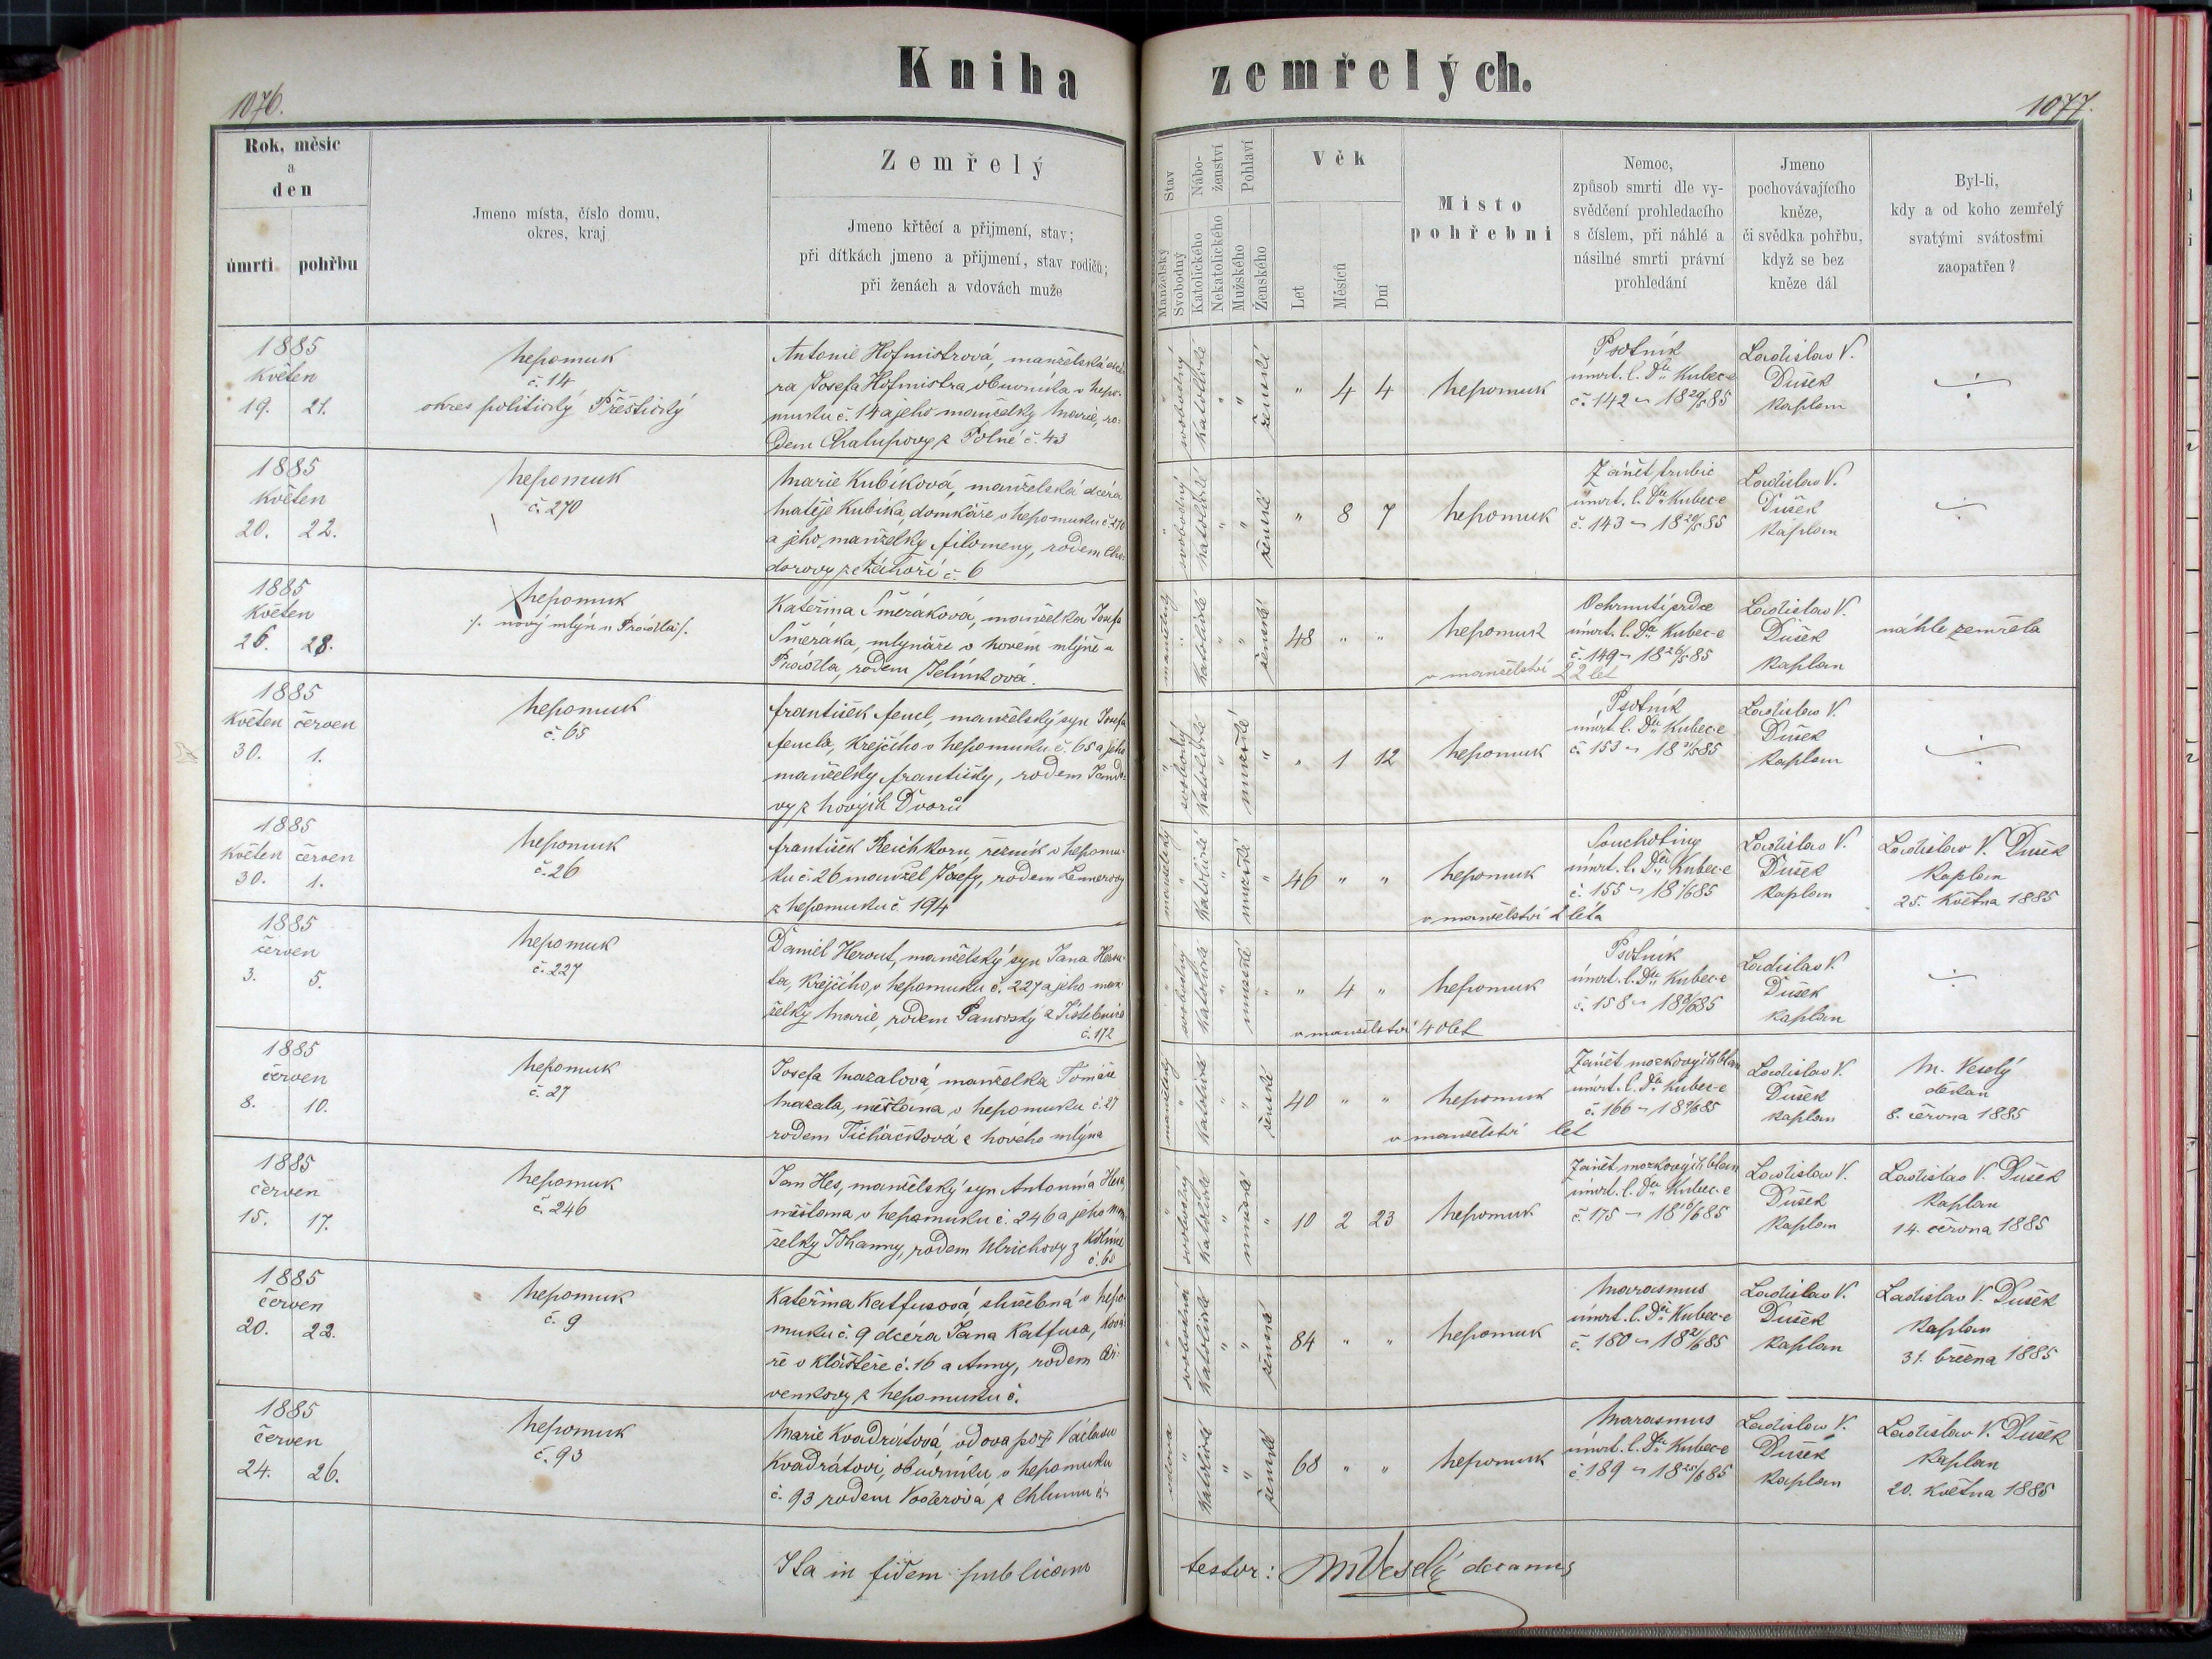 Kniha zemřelých.
1076.
1077.
Rok, měsíc
a
den
úmrtí
pohřbu
Jmeno místa, číslo domu,
okres, kraj
Zemřelý
Jmeno křtěcí a přijmení, stav;
při dítkách jmeno a přijmení, stav rodičů;
při ženách a vdovách muže
Stav
Manželský
Svobodný
Nábo-
ženství
Katolického
Nekatolického
Pohlaví
Mužského
Ženského
Věk
Let
Měsíců
Dní
Místo
pohřební
Nemoc,
způsob smrti dle vy-
svědčení prohledacího
s číslem, při náhlé a
násilné smrti právní
prohledání
Jmeno
pochovávajícího
kněze,
či svědka pohřbu,
když se bez
kněze dál
Byl-li,
kdy a od koho zemřelý
svatými svátostmi
zaopatřen?
1885
Květen
19. 21.
Nepomuk
č. 14
okres politický Přeštický
Antonie Hofmistrová, manželská dce-
ra Josefa Hofmistra obuvníka v Nepo-
muku č. 14 a jeho manželky Marie, ro-
dem Chalupovy z Polné č. 43
" svobodný katolické " " ženské
" 4 4
Nepomuk
Psotník
úmrt. l. Dra Kubec-e
č. 142 – 18 20/5 85
Ladislav V.
Dušek
Kaplan
÷
1885
Květen
20. 22.
Nepomuk
č. 270
Marie Kubíková, manželská dcera
Matěje Kubíka, domkáře v Nepomuku č. 270
a jeho manželky Filomeny, rodem
dorovy ze Záhoří č. 6
" svobodný katolické " " ženské
" 8 7
Nepomuk
Zánět trubic
úmrt. l. Dra Kubec-e
č. 143 – 18 20/5 85
Ladislav V.
Dušek
Kaplan
÷
1885
Květen
26. 28.
Nepomuk
/. nový mlýn u Prádla /.
Kateřina Šmeráková, manželka Josefa
Šmeráka, mlynáře v Novém mlýně u
Prádla, rodem Jelínková.
manželský " katolické " " ženské
48 " "
Nepomuk
v manželství 22 let
Ochrnutí srdce
úmrt. l. Dra Kubec-e
č. 149 – 18 26/5 85
Ladislav V.
Dušek
Kaplan
náhle zemřela
1885
Květen červen
30. 1.
Nepomuk
č. 65
František Fencl, manželský syn Josefa
Fencla, krejčího v Nepomuku č. 65 a jeho
manželky Františky, rodem
vy z Nových Dvorů
" svobodný katolické " mužské "
" 1 12
Nepomuk
Psotník
úmrt. l. Dra Kubec-e
č. 153 – 18 1/6 85
Ladislav V.
Dušek
Kaplan
÷
1885
Květen červen
30. 1.
Nepomuk
č. 26
František Reichkorn, řezník v Nepomu-
ku č. 26 manžel Josefy, rodem Lennerovy
z Nepomuku č. 194
manželský " katolické " mužské "
46 " "
Nepomuk
v manželství 2 léta
Souchotiny
úmrt. l. Dra Kubec-e
č. 155 – 18 1/6 85
Ladislav V.
Dušek
Kaplan
Ladislav V. Dušek
Kaplan
25. Května 1885
1885
červen
3. 5.
Nepomuk
č. 227
Daniel Herout, manželský syn Jana Herou-
ta, krejčího, v Nepomuku č. 227 a jeho man-
želky Marie, rodem Panovský z
č. 172
" svobodný katolické " mužské "
" 4 "
Nepomuk
v manželství 40 let
Psotník
úmrt. l. Dra Kubec-e
č. 158 – 18 3/6 85
Ladislav V.
Dušek
Kaplan
÷
1885
červen
8. 10.
Nepomuk
č. 27
Josefa Mazalová, manželka Tomáše
Mazala, měšťana v Nepomuku č. 27
rodem Ticháčková z Nového mlýna
manželský " katolické " " ženské
40 " "
Nepomuk
v manželství let
Zánět mozkových blan
úmrt. l. Dra Kubec-e
č. 166 – 18 9/6 85
Ladislav V.
Dušek
Kaplan
M. Veselý
děkan
8. června 1885
1885
červen
15. 17.
Nepomuk
č. 246
Jan Hes, manželský syn Antonína Hesa,
měšťana v Nepomuku č. 246 a jeho man-
želky Johanny, rodem Ulrichovy z
č. 65
" svobodný katolické " mužské "
10 2 23
Nepomuk
Zánět mozkových blan
úmrt. l. Dra Kubec-e
č. 175 – 18 16/6 85
Ladislav V.
Dušek
Kaplan
Ladislav V. Dušek
Kaplan
14. června 1885
1885
červen
20. 22.
Nepomuk
č. 9
Kateřina Katfusová, služebná v Nepo-
muku č. 9 dcera Jana Katfusa, ková-
ře v Klášteře č. 16 a Anny, rodem Čer-
venkovy z Nepomuku č.
" svobodná katolické " " ženské
84 " "
Nepomuk
Marasmus
úmrt. l. Dra Kubec-e
č. 180 – 18 21/6 85
Ladislav V.
Dušek
Kaplan
Ladislav V. Dušek
Kaplan
31. března 1885
1885
červen
24. 26.
Nepomuk
č. 93
Marie Kvadrátová, vdova po † Václavu
Kvadrátovi, obuvníku v Nepomuku
č. 93 rodem z Chlumu č.
vdova " katolické " " ženské
68 " "
Nepomuk
Marasmus
úmrt. l. Dra Kubec-e
č. 189 – 18 25/6 85
Ladislav V.
Dušek
Kaplan
Ladislav V. Dušek
Kaplan
20. Května 1885
Ita in fidem publicam testor: M Veselý decanus